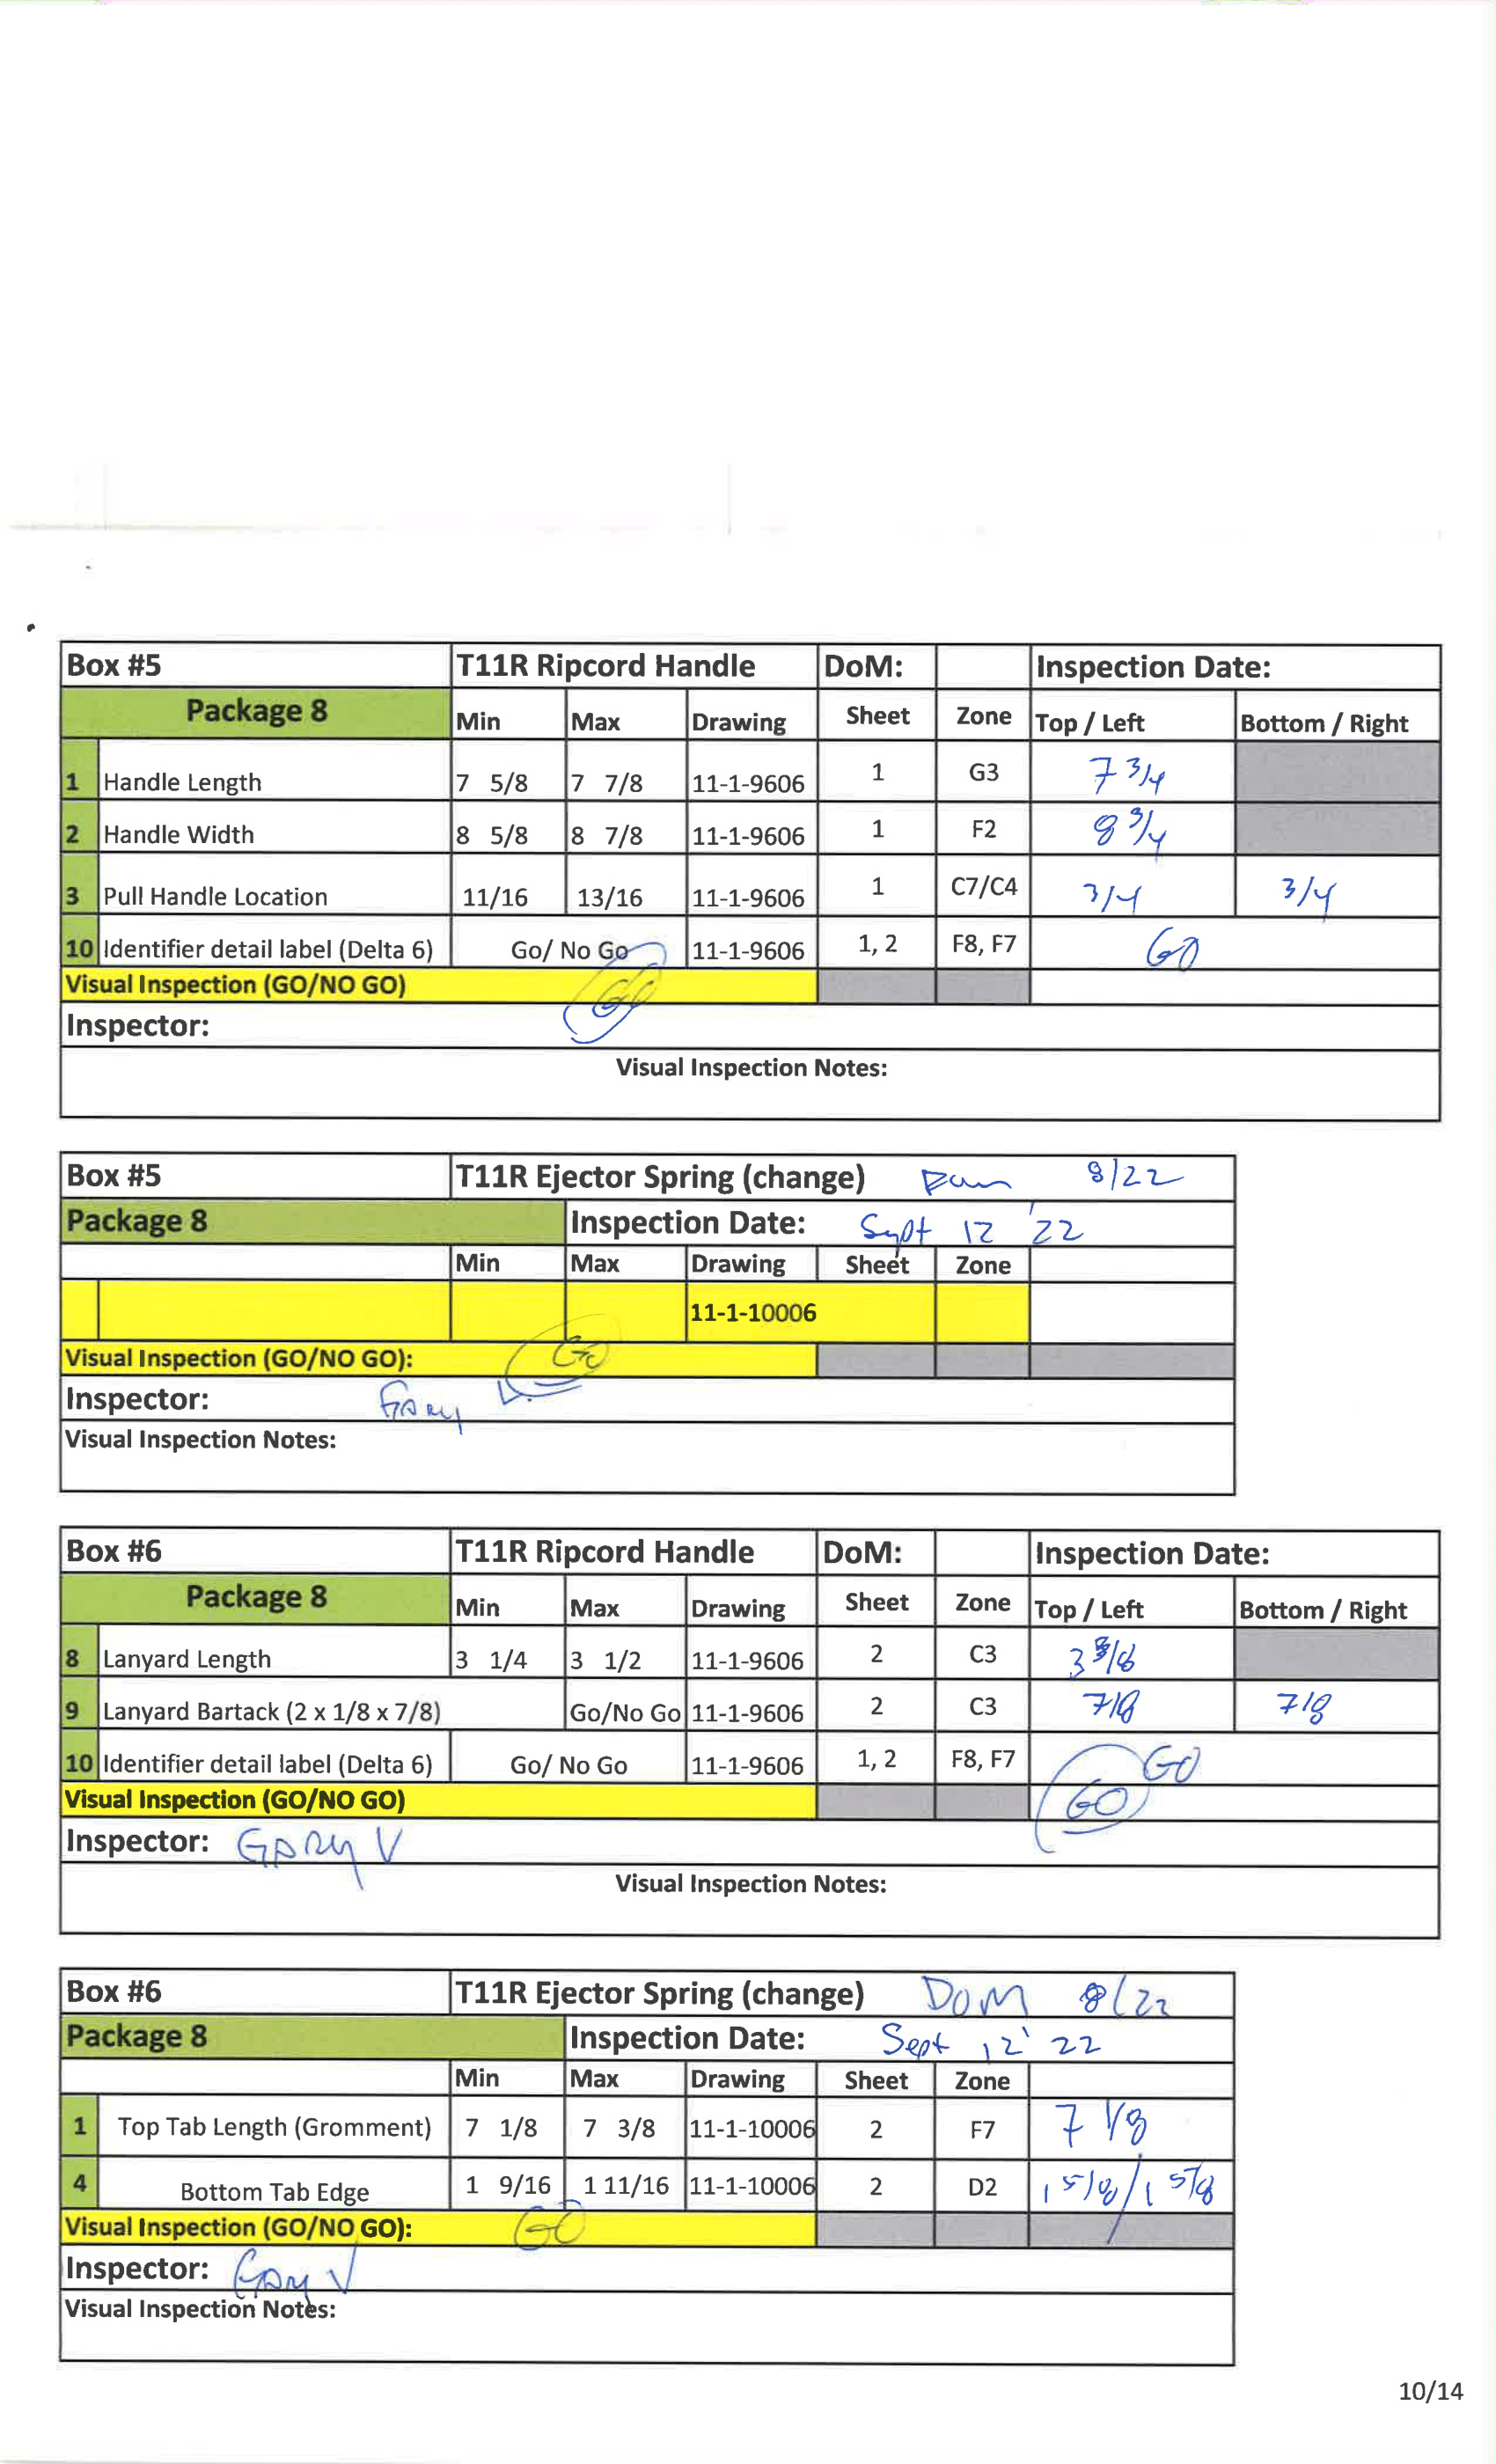 Box #5 T11R Ripcord Handle DoM: Inspection Date:
Package 8 Min Max Drawing Sheet Zone Top / Left Bottom / Right
1 Handle Length 7 5/8 7 7/8 11-1-9606 1 G3 7 3/4
2 Handle Width 8 5/8 8 7/8 11-1-9606 1 F2 8 3/4
3 Pull Handle Location 11/16 13/16 11-1-9606 1 C7/C4 3/4 3/4
10 Identifier detail label (Delta 6) Go/ No Go 11-1-9606 1, 2 F8, F7 GO
Visual Inspection (GO/NO GO) GO
Inspector:
Visual Inspection Notes:
Box #5 T11R Ejector Spring (change) 8/22
Package 8 Inspection Date: Sept 12 '22
Min Max Drawing Sheet Zone
11-1-10006
Visual Inspection (GO/NO GO): GO
Inspector: Gary V
Visual Inspection Notes:
Box #6 T11R Ripcord Handle DoM: Inspection Date:
Package 8 Min Max Drawing Sheet Zone Top / Left Bottom / Right
8 Lanyard Length 3 1/4 3 1/2 11-1-9606 2 C3
9 Lanyard Bartack (2 x 1/8 x 7/8) Go/No Go 11-1-9606 2 C3 7/8 7/8
10 Identifier detail label (Delta 6) Go/ No Go 11-1-9606 1, 2 F8, F7 GO
Visual Inspection (GO/NO GO) GO
Inspector: GARY V
Visual Inspection Notes:
Box #6 T11R Ejector Spring (change) DOM 8/22
Package 8 Inspection Date: Sept 12' 22
Min Max Drawing Sheet Zone
1 Top Tab Length (Gromment) 7 1/8 7 3/8 11-1-10006 2 F7 7 1/8
4 Bottom Tab Edge 1 9/16 1 11/16 11-1-10006 2 D2 1 5/8 / 1 5/8
Visual Inspection (GO/NO GO): GO
Inspector: Gary V
Visual Inspection Notes:
10/14